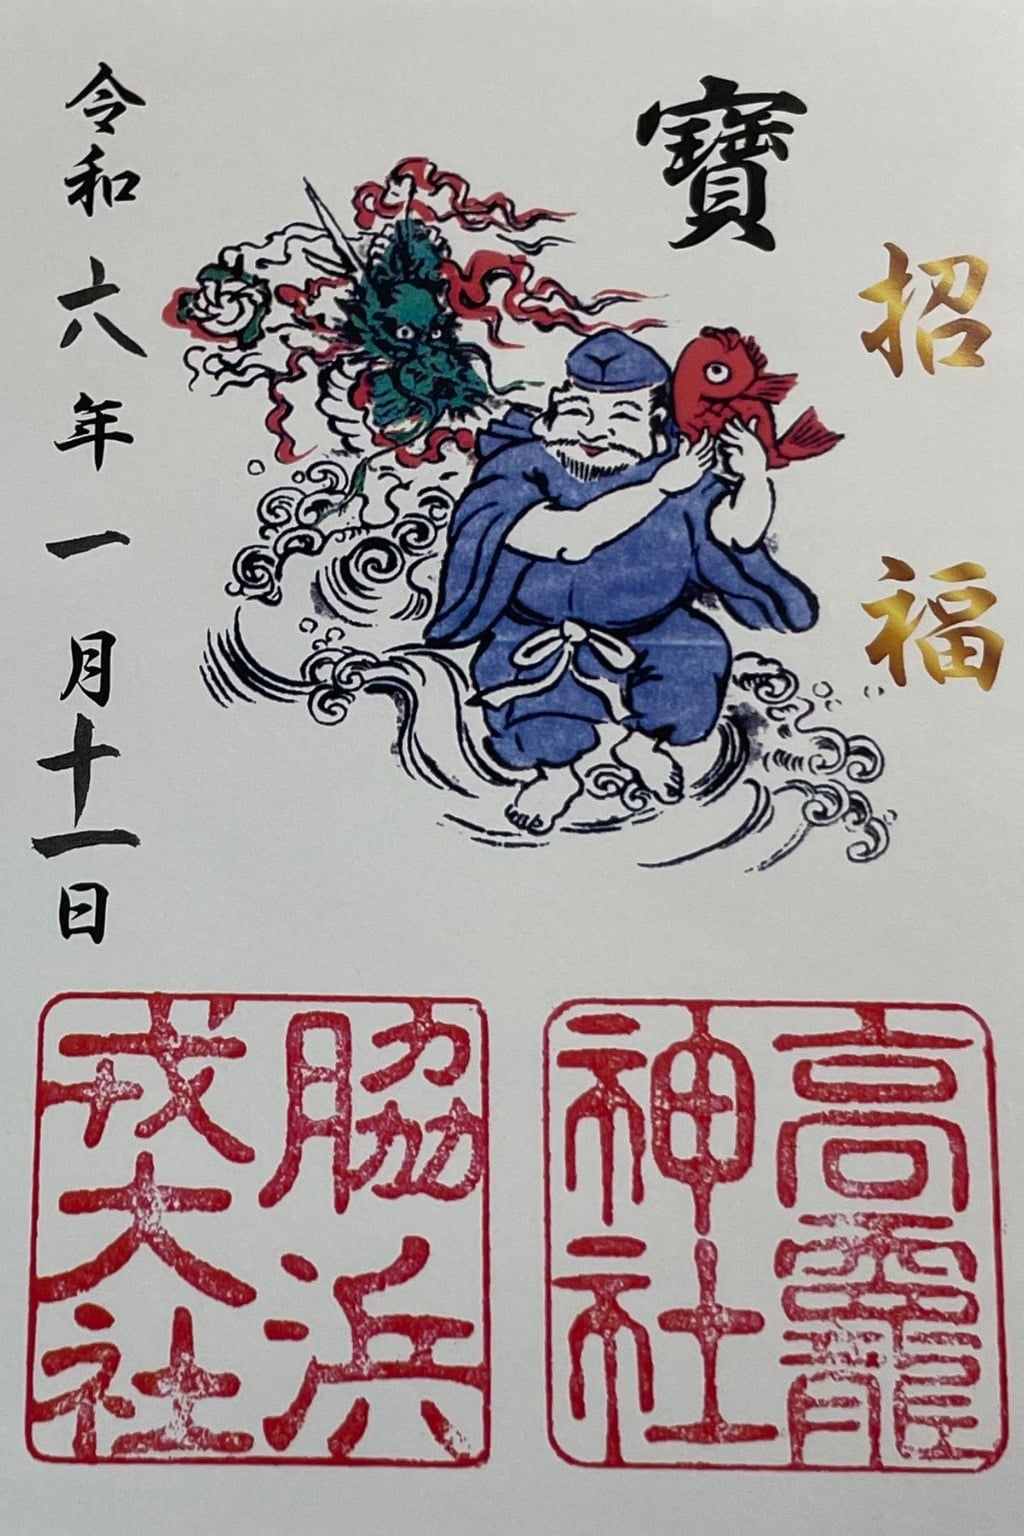 招福
寶
令和六年一月十一日
高龗神社
脇浜戎大社